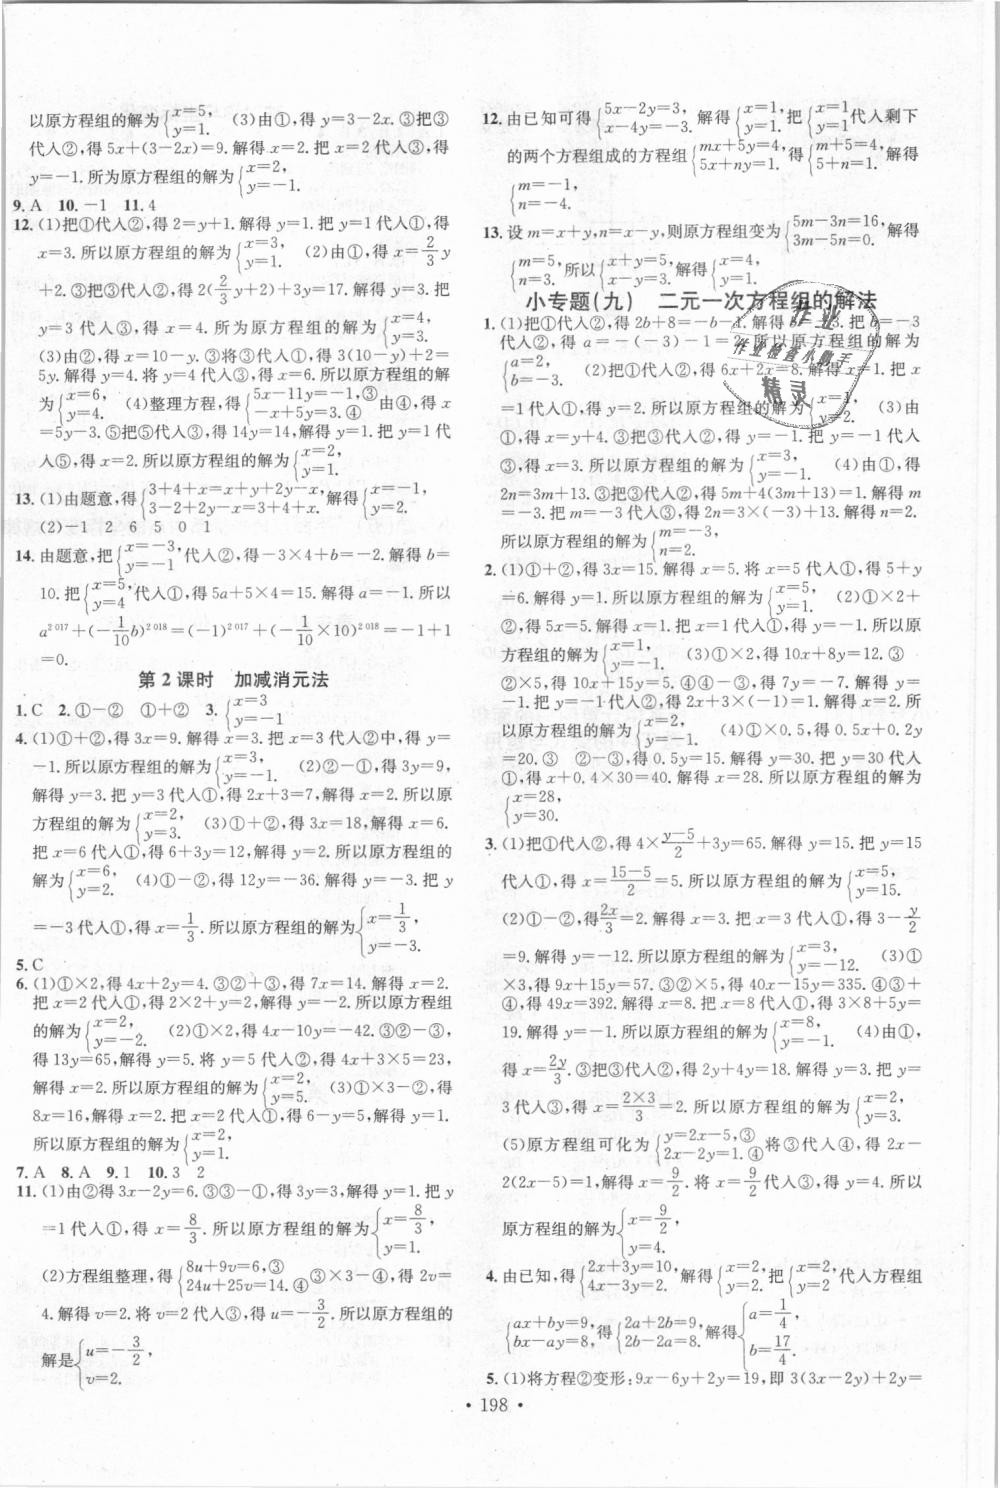 以原方程组的解为{x=5, y=1. (3)由①,得 y=3-2x.③把③
代人②,得 5x+(3-2x)=9.解得 x=2.把 x=2 代人③,得
y=-1.所为原方程组的解为{x=2, y=-1.
9.A 10.-1 11.4
12.(1)把①代人②,得 2=y+1.解得 y=1.把 y=1 代人①,得
x=3.所以原方程组的解为{x=3, y=1. (2)由①,得 x=2/3 y
+2.③把③代人②,得 2(2/3 y+2)+3y=17.解得 y=3.把
y=3 代人③,得 x=4.所为原方程组的解为{x=4, y=3. (3)由
①,得 x=10-y.③将③代人②,得 3(10-y)+2(10-y)=
5y.解得 y=4.将 y=4 代人③,得 x=6.所以原方程组的解
为{x=6, y=4. (4)整理方程,得{5x-11y=-1,③ -x+5y=3.④由④,得 x
=5y-3.⑤把⑤代人③,得 14y=14,解得 y=1.把 y=1 代
人⑤,得 x=2.所以原方程组的解为{x=2, y=1.
13.(1)由题意,得{3+4+x=x+y+2y-x, 3-2+2y-x=3+4+x.解得{x=-1, y=2.
(2)-1 2 6 5 0 1
14.由题意,把{x=-3, y=-1代人②,得-3×4+b=-2.解得 b=
10.把{x=5, y=4代人①,得 5a+5×4=15.解得 a=-1.所以
a^2 017+(-1/10 b)^2 018=(-1)^2 017+(-1/10×10)^2 018=-1+1
=0.
第 2 课时 加减消元法
1.C 2.①-② ①+② 3.{x=3 y=-1
4.(1)①+②,得 3x=9.解得 x=3.把 x=3 代人②中,得 y=
-1.所以原方程组的解为{x=3, y=-1. (2)②-①,得 3y=9,
解得 y=3.把 y=3 代人①,得 2x+3=7,解得 x=2.所以原
方程组的解为{x=2, y=3. (3)①+②,得 3x=18,解得 x=6.
把 x=6 代人①,得 6+3y=12,解得 y=2.所以原方程组的
解为{x=6, y=2. (4)①-②,得 12y=-36.解得 y=-3.把 y
=-3 代人①,得 x=1/3.所以原方程组的解为{x=1/3, y=-3.
5.C
6.(1)①×2,得 4x+2y=4.③②+③,得 7x=14.解得 x=2.
把 x=2 代人①,得 2×2+y=2,解得 y=-2.所以原方程组
的解为{x=2, y=-2. (2)①×2,得 4x-10y=-42.③②-③,
得 13y=65,解得 y=5.将 y=5 代人②,得 4x+3×5=23,
解得 x=2.所以原方程组的解为{x=2, y=5. (3)①×3-②,得
8x=16,解得 x=2.把 x=2 代人①,得 6-y=5,解得 y=1.
所以原方程组的解为{x=2, y=1.
7.A 8.A 9.1 10.3 2
11.(1)由②得 3x-2y=6.③③-①,得 3y=3,解得 y=1.把 y
=1 代人①,得 x=8/3.所以原方程组的解为{x=8/3, y=1.
(2)方程组整理,得{8u+9v=6,③ 24u+25v=14.④③×3-④,得 2v=
4.解得 v=2.将 v=2 代人③,得 u=-3/2.所以原方程组的
解是{u=-3/2, v=2.
12.由已知可得{5x-2y=3, x-4y=-3.解得{x=1, y=1.把{x=1, y=1代人剩下
的两个方程组成的方程组{mx+5y=4, 5x+ny=1.得{m+5=4, 5+n=1.解得
{m=-1, n=-4.
13.设 m=x+y,n=x-y,则原方程组变为{5m-3n=16, 3m-5n=0.解得
{m=5, n=3.所以{x+y=5, x-y=3.解得{x=4, y=1.
小专题(九) 二元一次方程组的解法
1.(1)把①代人②,得 2b+8=-b-1.解得 b=-3.把 b=-3
代人②,得 a=-(-3)-1=2.所以原方程组的解为
{a=2, b=-3. (2)把①代人②,得 6x+2x=8.解得 x=1.把 x
=1 代人①,得 y=2.所以原方程组的解为{x=1, y=2. (3)由
①,得 x=y+4.③把③代人②,得 y=-1.把 y=-1 代人
③,得 x=3.所以原方程组的解为{x=3, y=-1. (4)由①,得
2n=3m+13.③把③代人②,得 5m+4(3m+13)=1.解得 m
=-3.把 m=-3 代人③,得 2n=3×(-3)+13.解得 n=2.
所以原方程组的解为{m=-3, n=2.
2.(1)①+②,得 3x=15.解得 x=5.将 x=5 代人①,得 5+y
=6.解得 y=1.所以原方程组的解为{x=5, y=1. (2)①×2+
②,得 5x=5.解得 x=1.把 x=1 代人①,得 2-y=3.解得 y
=-1.所以原方程组的解为{x=1, y=-1. (3)①×2,得 10x+8y=12.③
②×5,得 10x+15y=5.④③-④,得 7y=-7.解得 y=
-1.把 y=-1 代人②,得 2x+3×(-1)=1.解得 x=2.所
以原方程组的解为{x=2, y=-1. (4)①×0.5,得 0.5x+0.2y
=20.③ ②-③,得 0.5y=15.解得 y=30.把 y=30 代人
①,得 x+0.4×30=40.解得 x=28.所以原方程组的解为
{x=28, y=30.
3.(1)把①代人②,得 4×(y-5)/2+3y=65.解得 y=15.把 y=15
代人①,得 x=(15-5)/2=5.所以原方程组的解为{x=5, y=15.
(2)①-②,得2x/3=2.解得 x=3.把 x=3 代人①,得 3-y/2
=9.解得 y=-12.所以原方程组的解为{x=3, y=-12. (3)①
×3,得 9x+15y=57.③②×5,得 40x-15y=335.④③+
④,得 49x=392.解得 x=8.把 x=8 代人①,得 3×8+5y=
19.解得 y=-1.所以原方程组的解为{x=8, y=-1. (4)由①,
得 x=2y/3.③把③代人②,得 2y+4y=18.解得 y=3.把 y=
3 代人③,得 x=(2×3)/3=2.所以原方程组的解为{x=2, y=3.
(5)原方程组可化为{y=2x-5,③ 2x-2y=1.④将③代人④,得 2x-
2(2x-5)=1,解得 x=9/2.将 x=9/2代人③,得 y=4.所以
原方程组的解为{x=9/2, y=4.
4.由已知,得{2x+3y=10, 4x-3y=2.解得{x=2, y=2.把{x=2, y=2代人方程组
{ax+by=9, bx-ay=8,得{2a+2b=9, 2b-2a=8.解得{a=1/4, b=17/4.
5.(1)将方程②变形:9x-6y+2y=19,即 3(3x-2y)+2y=
• 198 •
作业
作业检查小助手
精灵